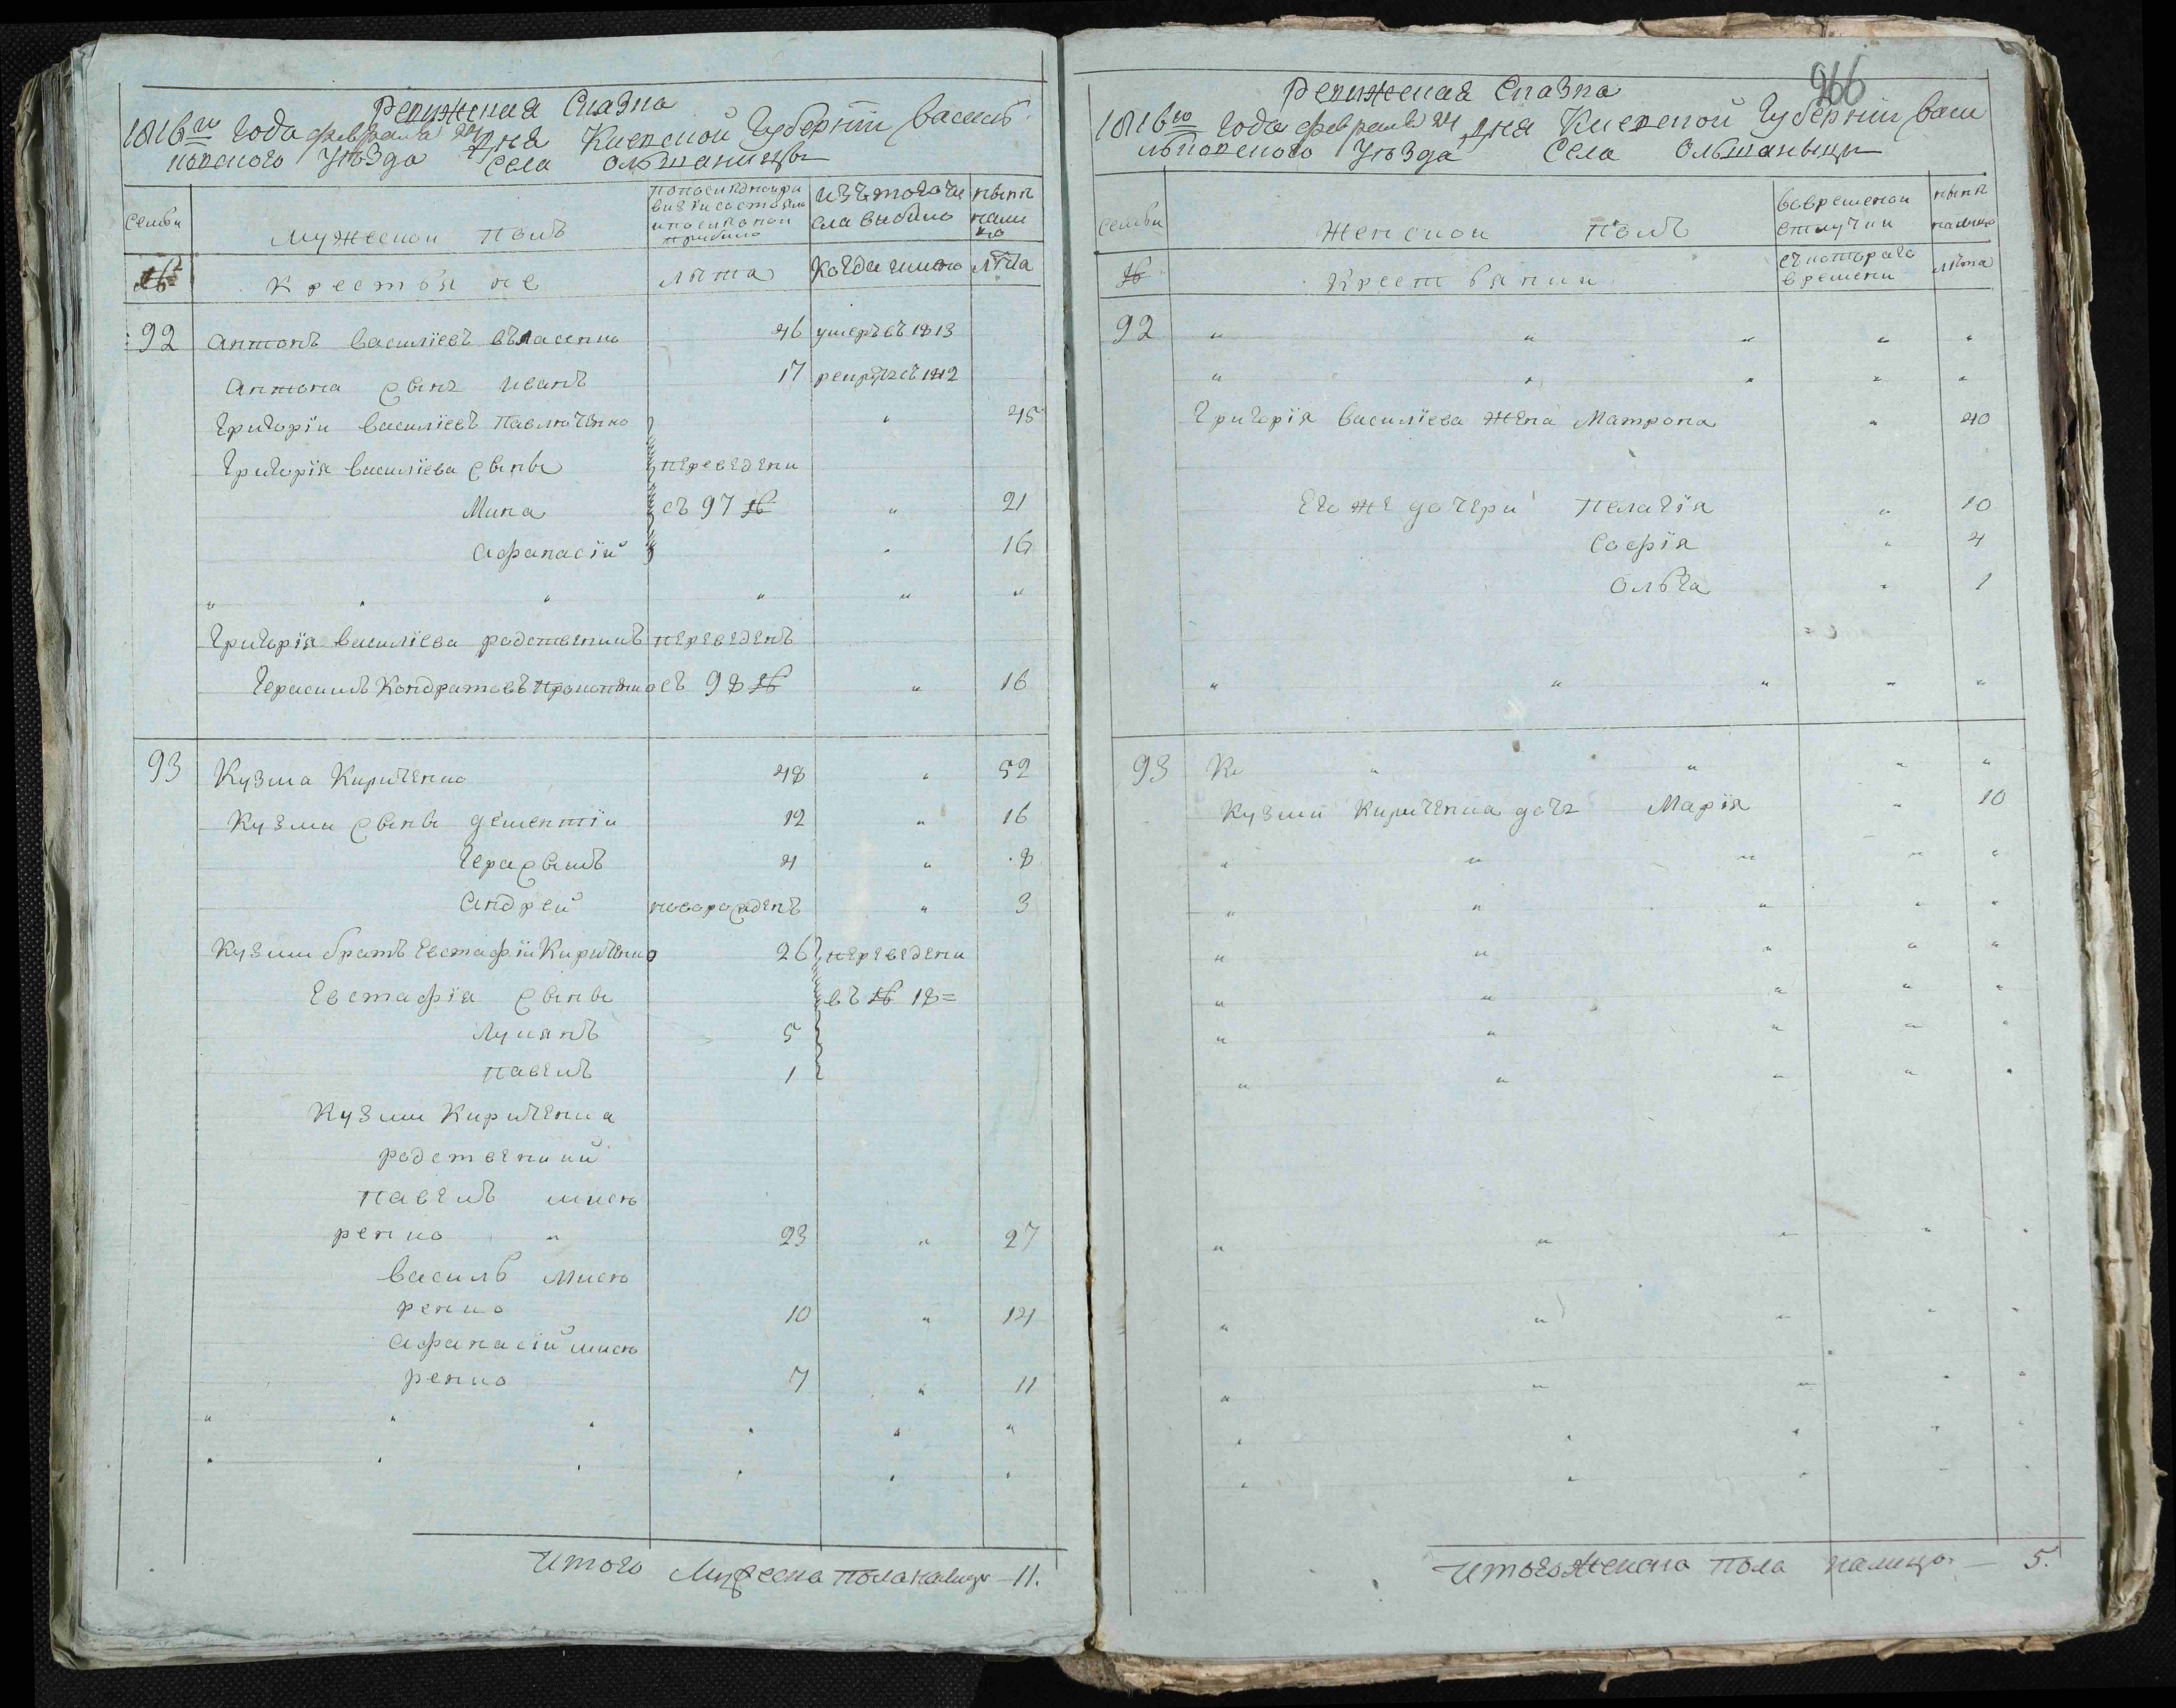 Ревижская Сказка
1816го Года февраля 24 Дня Киевской Губернии Василь
ковского Уезда Села Ольшаницы
Семьи
Мужеской полъ
по последней ре
визии состояло
и после оной
прибыло
Изъ того чи
сла выбыло
ныне
нали
цо
№
Крестьяне
лета
Когда имянно
лета
92 Антонъ Василіевъ Власенко 46 умеръ въ 1813
Антона сынъ Иванъ 17 рекрутъ съ 1812
Григорій Василіевъ Павлюченко " 45
Григорія Василіева сыны переведени
Мина съ 97 № " 21
Афанасій " 16
" " " " " "
Григорія Василіева родственникъ переведенъ
Герасимъ Кондратовъ съ 98 № " 16
93 Кузма Кириченко 48 " 52
Кузми сыны Дементій 12 " 16
Герасымъ 4 " 8
Андрей новорожденъ " 3
Кузми братъ Евстафій Кириченко 26 переведени
Евстафія сыны въ № 18=
Лукянъ 5
Павелъ 1
Кузми Кириченка
родственики
Павелъ Мисю
ренко " 23 " 27
Василь Мисю
ренко 10 " 14
Афанасій Мисю
ренко 7 " 11
" " " " " "
" " " " " "
Итого Мужеска пола налицо – 11.
266
Ревижская Сказка
1816го Года февраля 24 Дня Киевской Губернии Васи
льковского Уезда Села Ольшаныцы
Семьи
Женской полъ
Во временной
отлучки
ныне
налицо
№
Крестьянки
съ которого
времени
лета
92 " " " " "
" " " " "
Григорія Василіева жена Матрона " 40
Его же дочери Пелагія " 10
Софія " 4
Ольга " 1
" " " " "
93 К " " " "
Кузми Кириченка дочь Марія " 10
" " " " "
" " " " "
" " " " "
" " " " "
" " " " "
" " " " "
" " " " "
" " " " "
" " " " "
" " " " "
" " " " "
Итого Женска пола налицо – 5.